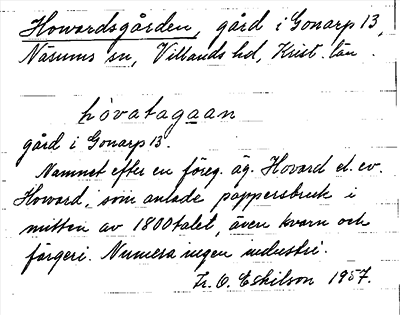 Howardsgården, gård i Gonarp 13,
Näsums sn, Villands hd, Krist. län.
hovatagaan
gård i Gonarp 13.
Namnet efter en föreg. äg. Hovard el. ev.
Howard, som anlade pappersbruk i
mitten av 1800 talet, även kvarn och
färgeri. Numera ingen industri.
Fr. O. Eskilson 1957.